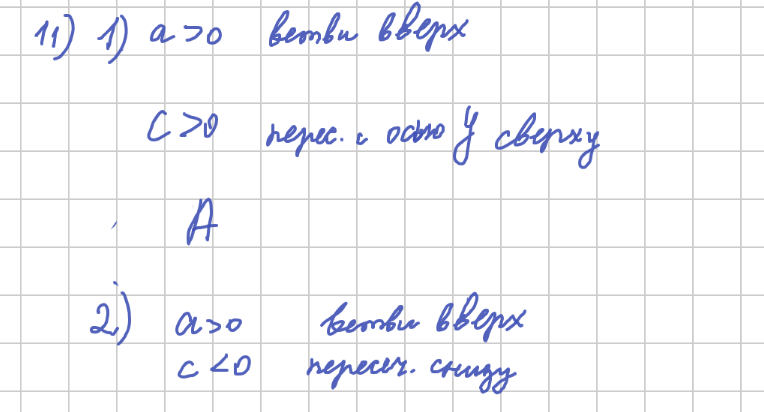 11) 1) a>0 ветви вверх
c>0 перес. с осью y сверху
A
2) a>0 ветви вверх
c<0 пересеч. снизу